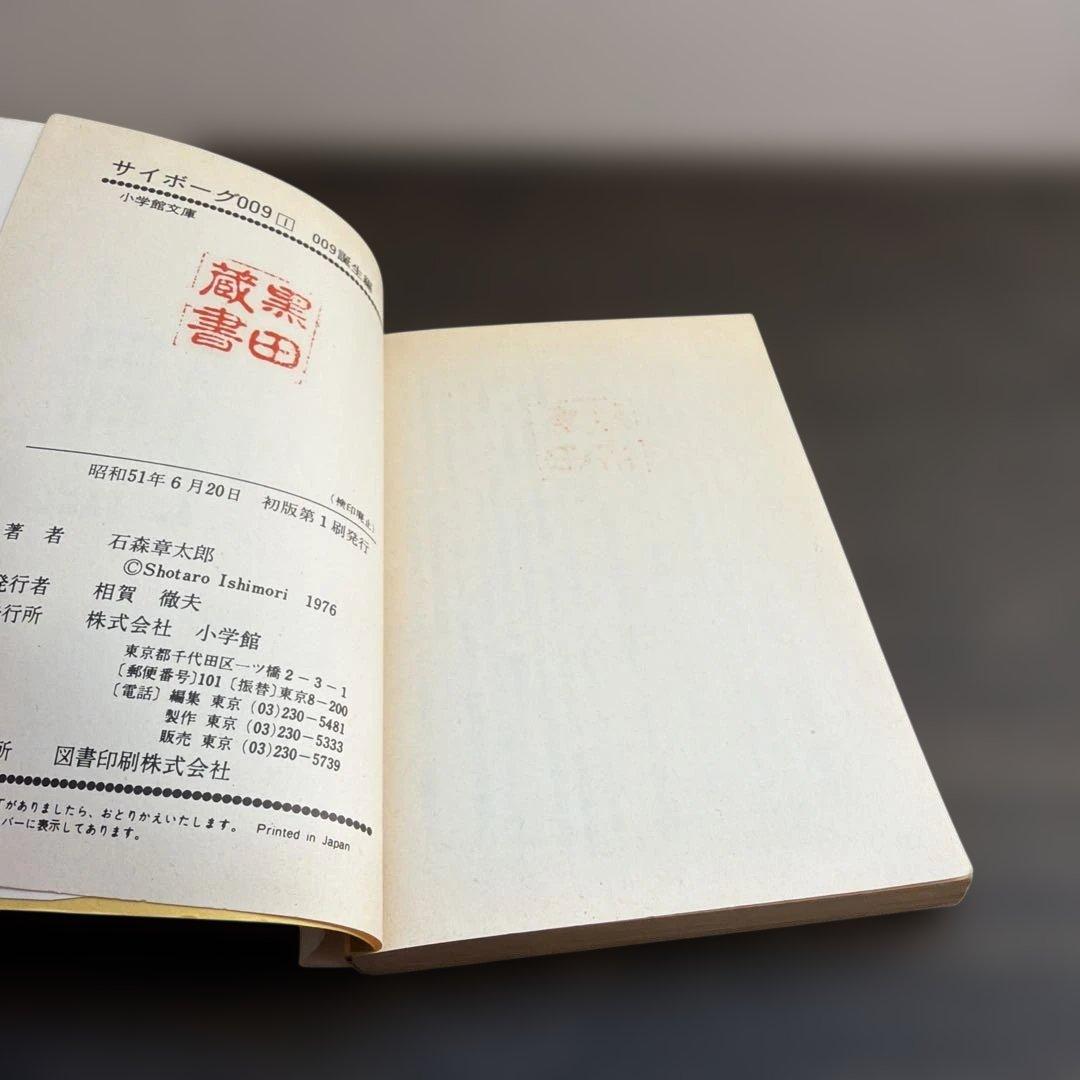 サイボーグ009 1 009誕生編
小学館文庫
黒田
蔵書
(検印廃止)
昭和51年6月20日 初版第1刷発行
著者 石森章太郎
©Shotaro Ishimori 1976
発行者 相賀 徹夫
行所 株式会社 小学館
東京都千代田区一ツ橋2-3-1
〔郵便番号〕101〔振替〕東京8-200
〔電話〕編集 東京 (03)230-5481
製作 東京 (03)230-5333
販売 東京 (03)230-5739
所 図書印刷株式会社
がありましたら、おとりかえいたします。 Printed in Japan
バーに表示してあります。